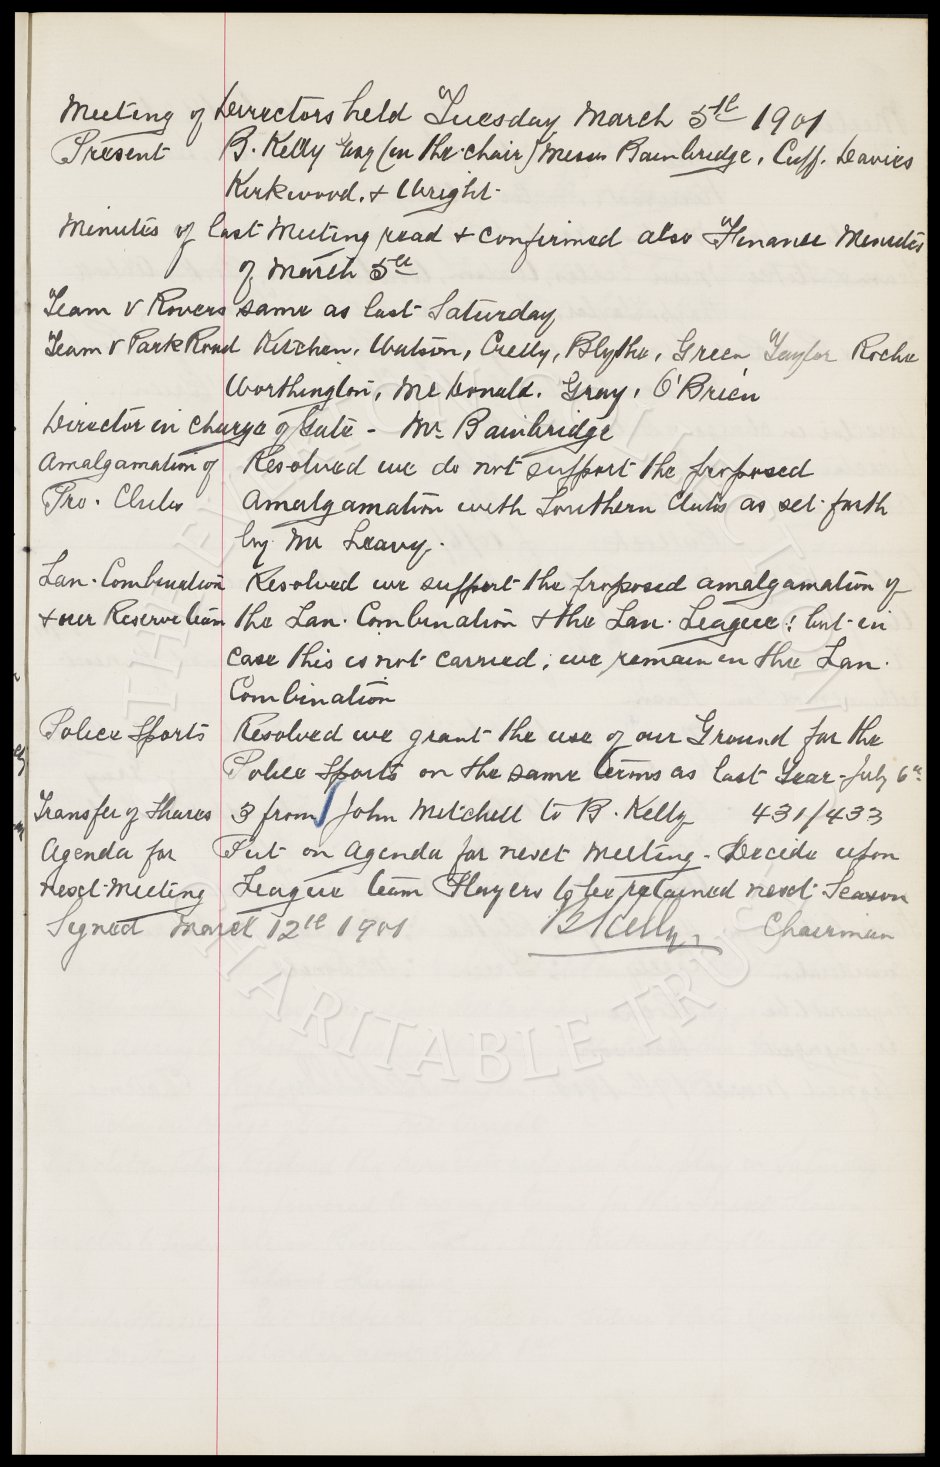 Meeting of Directors held Tuesday March 5th 1901
Present B. Kelly Esq (in the chair) Messrs Bainbridge, Cuff, Davies
Kirkwood, & Wright
Minutes of last Meeting read & confirmed also Finance Minutes
of March 5th
Team v Rovers same as last Saturday
Team v Park Road Kitchen, Watson, Crelly, Blythe, Green Taylor Roche
Worthington, McDonald, Gray, O'Brien
Director in charge of Gate - Mr Bainbridge
Amalgamation of Resolved we do not support the proposed
Pro. Clubs amalgamation with Southern Clubs as set forth
by Mr Leavy.
Lan. Combination Resolved we support the proposed amalgamation of
& our Reserve team the Lan. Combination & the Lan. League; but in
case this is not carried, we remain in the Lan.
Combination
Police Sports Resolved we grant the use of our Ground for the
Police Sports on the same terms as last Year - July 6th
Transfer of Shares 3 from John Mitchell to B. Kelly 431/433
Agenda for Put on Agenda for next Meeting - Decide upon
next Meeting League team Players to be retained next Season
Signed March 12th 1901 B Kelly, Chairman
THE EVERTON COLLECTION
CHARITABLE TRUST